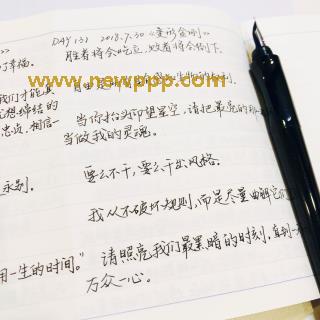 DAY 131 2018.7.30《变形金刚》
胜者将会屹立，败者将会倒下。
自由是
www.newppp.com
当你抬头仰望星空，请把最亮的那一颗
当做我的灵魂。
要么不干，要么干出风格。
我从不破坏规则，而是尽量曲解它们
请照亮我们最黑暗的时刻，直到
万众一心。
>>
幸福。
我们才能真
思想缔结的
忠贞，相信一
永别。
用一生的时间。”